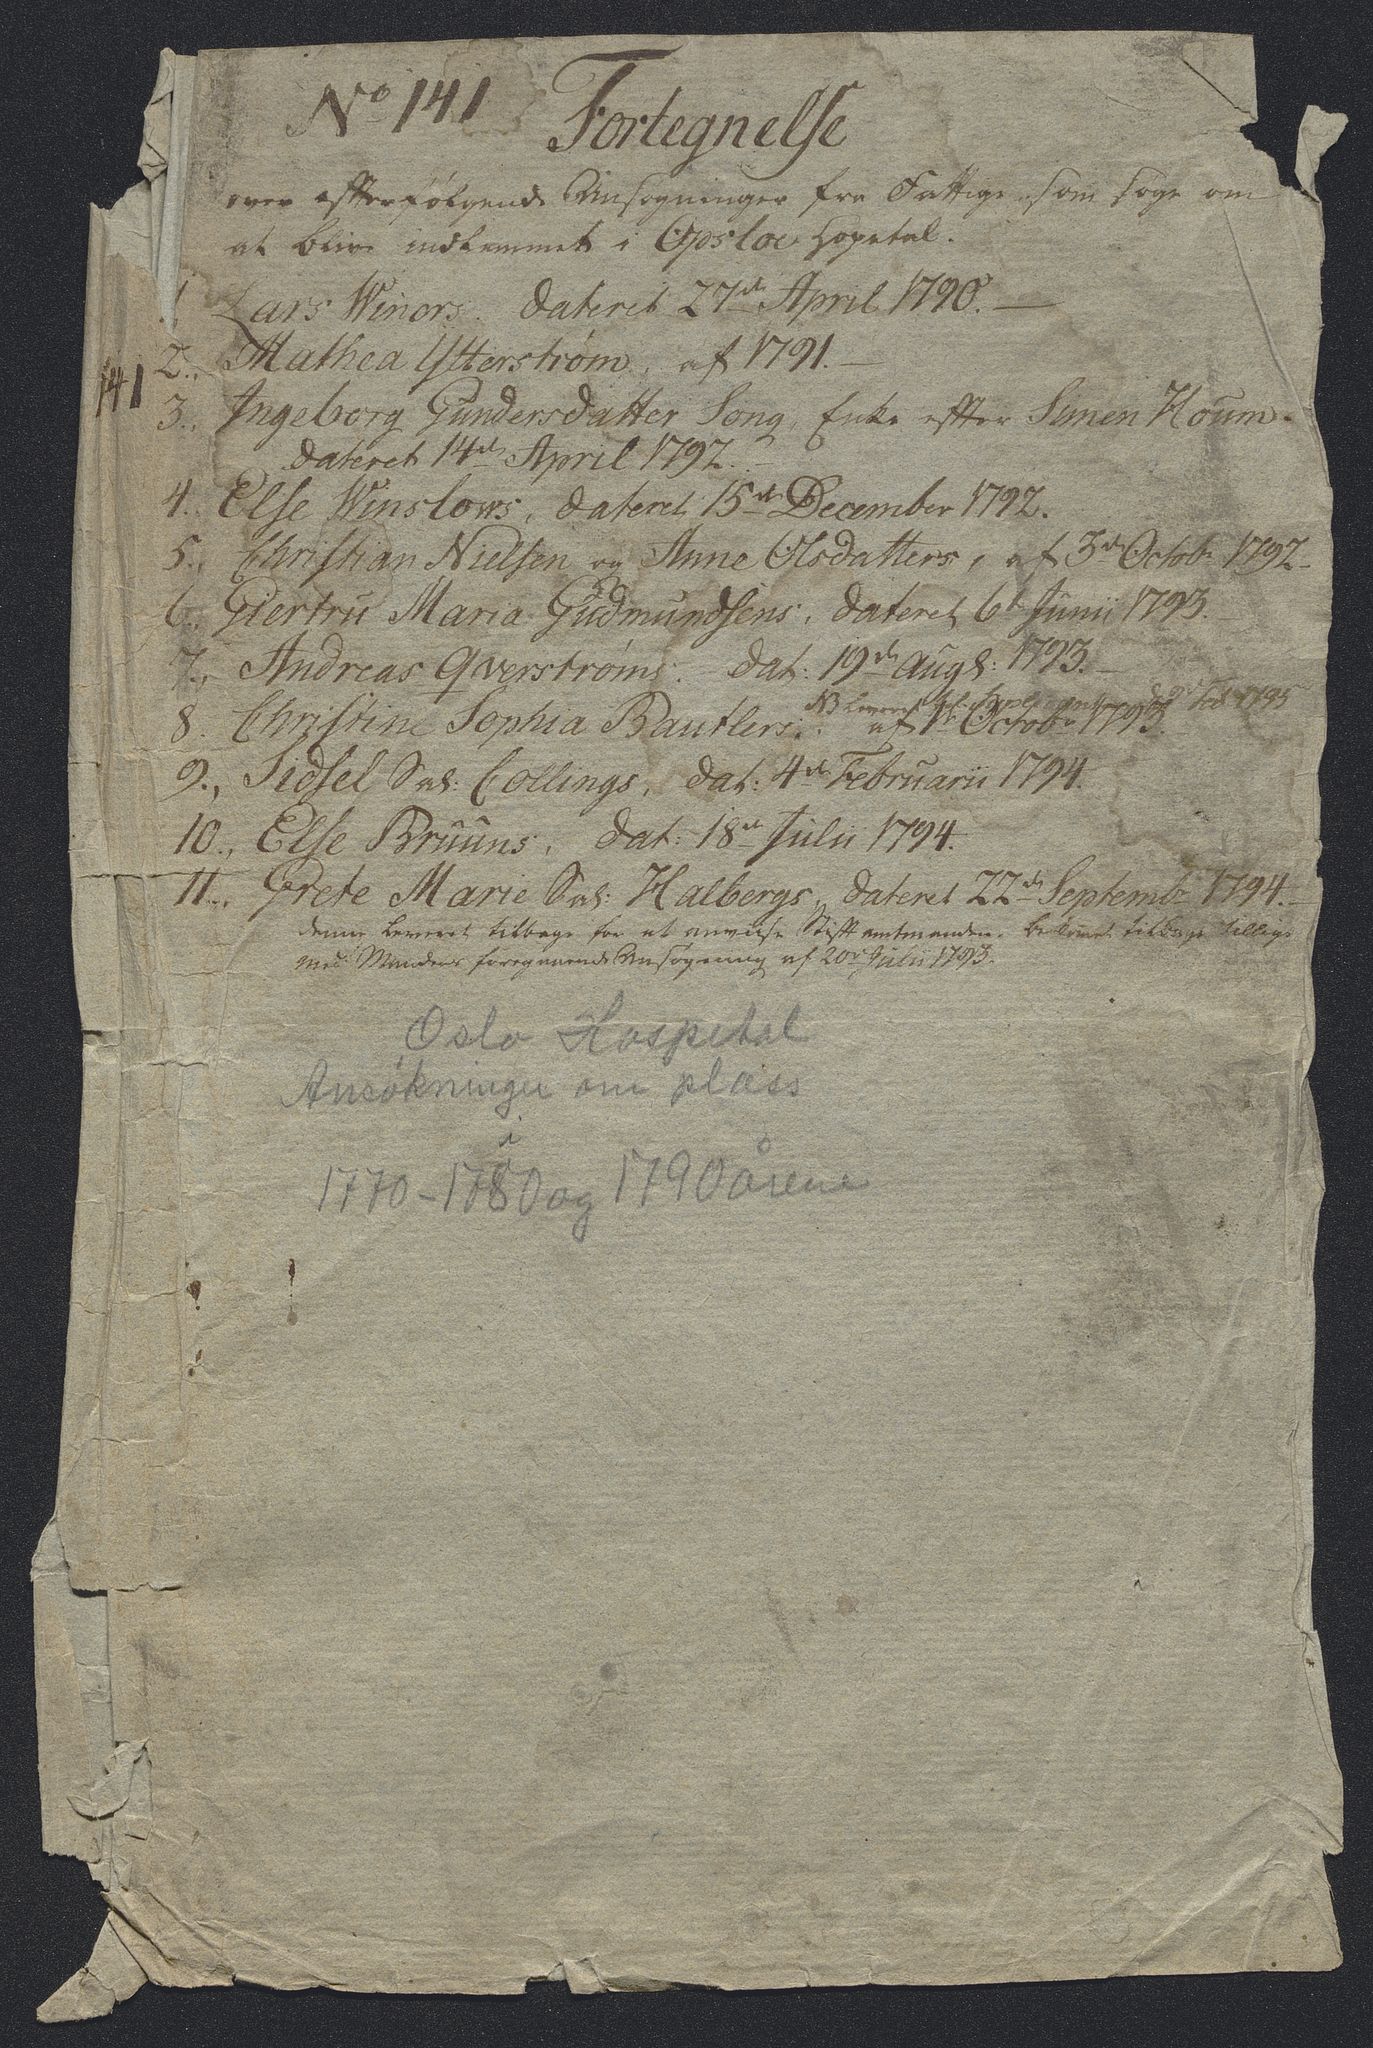 No 141 Fortegnelse
over efterfølgende Ansøgninger fra Fattige som søge om
at blive indlemmet i Opsloe Hospetal.
1 Lars Winers. dateret 27de April 1790. —
2., Mathea Ytterstrøm, af 1791. —
141
3., Ingeborg Gundersdatter Song, Enke efter Simen Houm-
dateret 14de April 1792. —
4. Else Winslows, dateret 15de December 1792.
5., Christian Nielsen og Anne Olsdatters, af 3de Octobr 1792-
6., Giertru Maria Gudmundsens, dateret 6te Junii 1793. —
7., Andreas Qverstrøms. dat: 19de Augs: 1793. —
NB Leveret Feb 1795
8. Christine Sophia Bautlers. af 1te Octobr 1793.
9., Sidsel Sal: Collings, dat: 4de Februarii 1794.
10., Else Bruuns, dat: 18de Julii 1794.
11., Grete Marie Sal: Halbergs, dateret 22de Septembr 1794. —
denne Leveret tilbage for at anviise Stiftamtmanden. bekommet tilbage tillige
med Mandens foregaaende Ansøgning af 20de Julii 1793.
Oslo Hospital
Ansøkninger om plass
i
1770-1780 og 1790 årene